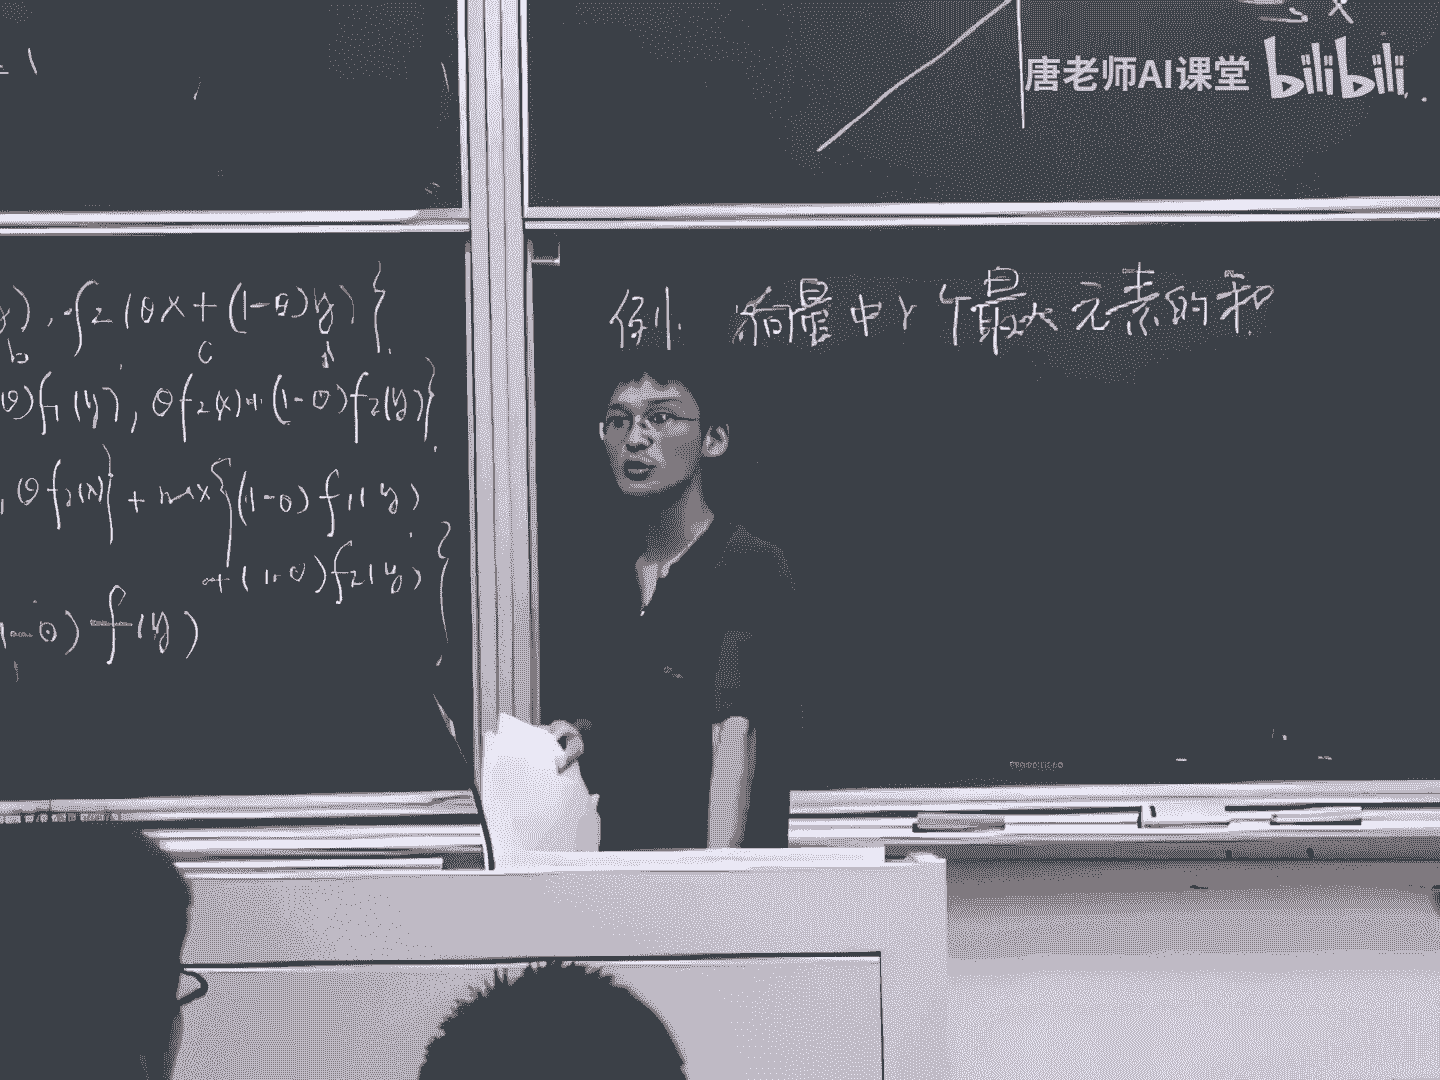 唐老师AI课堂 bilibili
), f2(θx+(1-θ)y)}
b c d
θ)f1(y), θf2(x)+(1-θ)f2(y)}
, θf2(x)} + max{(1-θ)f1(y)
(1-θ)f2(y)}
1-θ) f(y)
例: 向量中r个最大元素的和